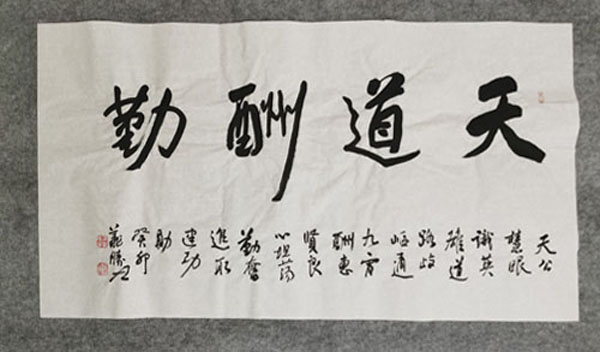 天道酬勤
天公
慧眼
识英
雄道
路歧
岖通
九霄
酬惠
贤良
心坦荡
勤奋
进取
建功
勋
癸卯